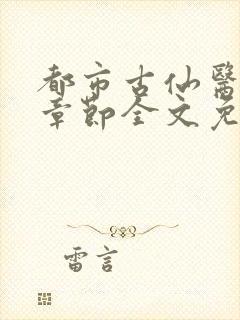 都市古仙醫
章節全文免
雷言